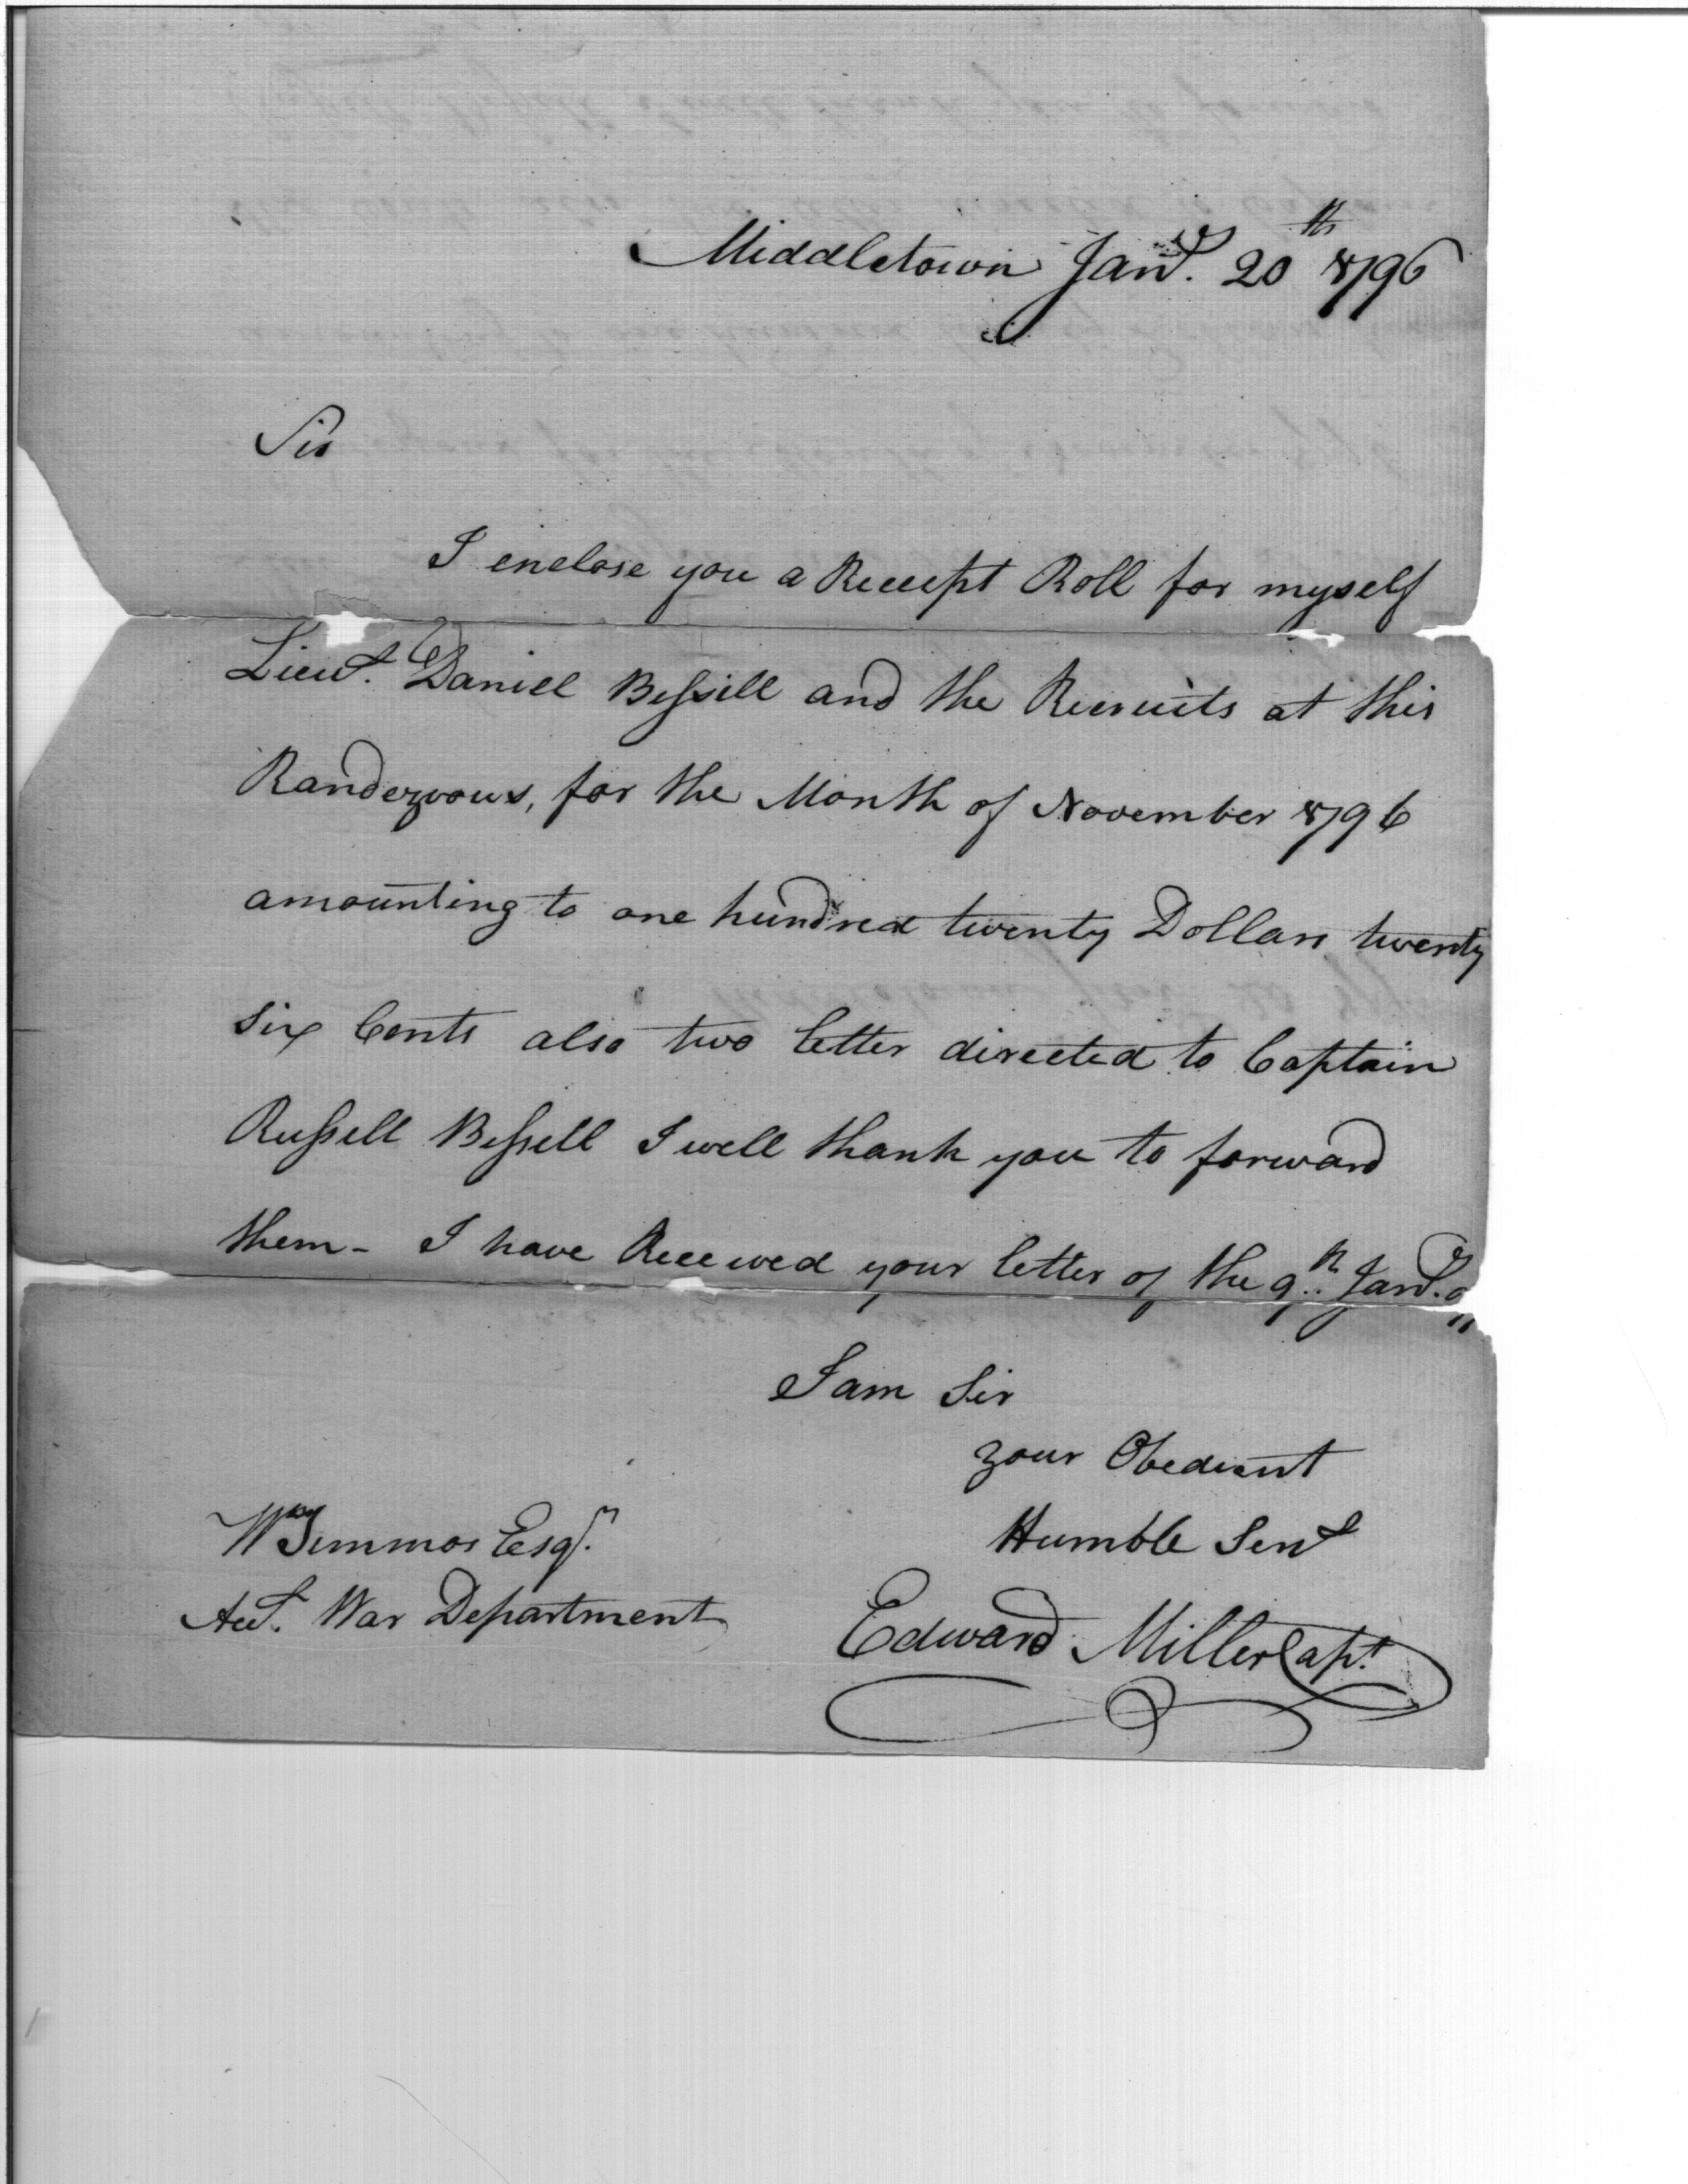 Middletown Jany. 20th 1796
Sir
I enclose you a Receipt Roll for myself
Lieut. Daniel Bissill and the Recruits at this
Randezvous, for the Month of November 1796
amounting to one hundred twenty Dollars twenty
six Cents also two letter directed to Captain
Russell Bissell I well thank you to forward
them - I have Received your letter of the 9th Jany.
I am Sir
your Obedient
Humble Servt
Wm Simmos Esqr.
Act. War Department
Edward Miller Capt.